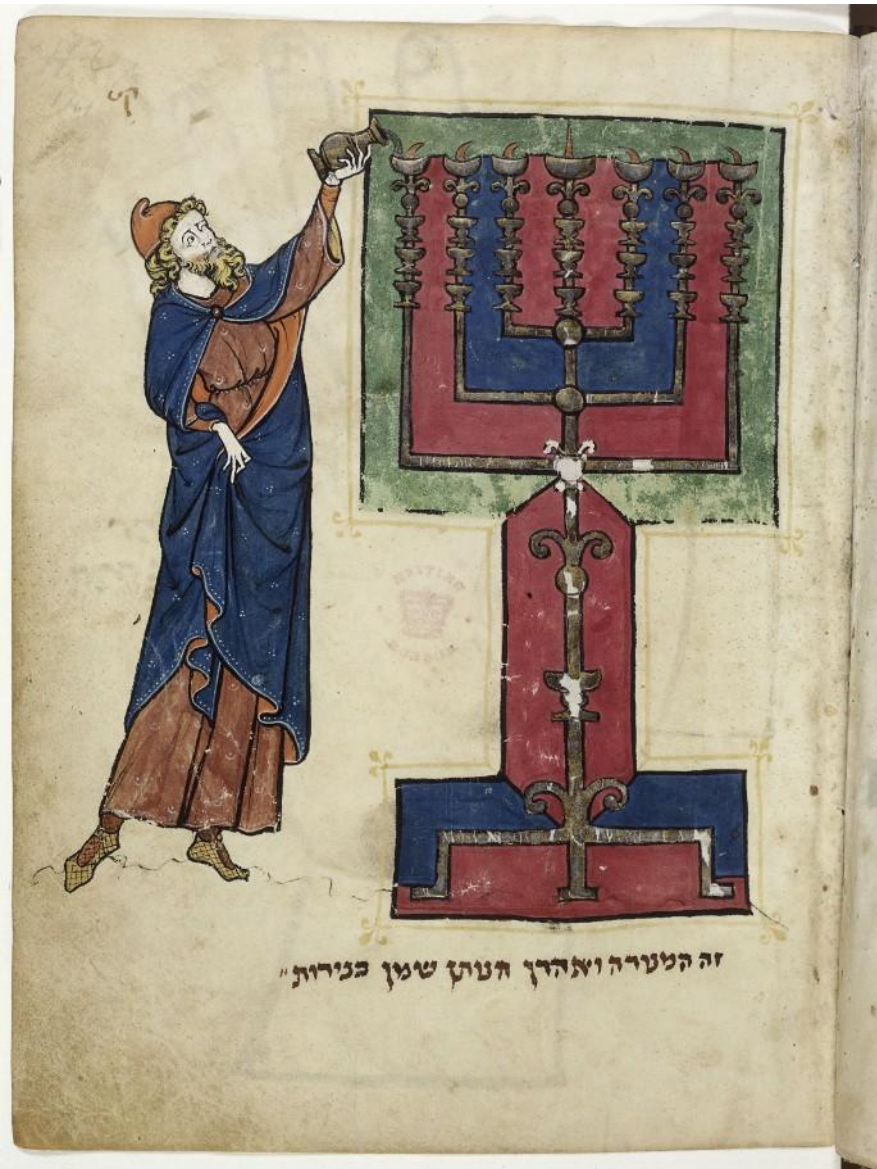 BRITISH
MUSEUM
זה המנורה ואהרן הנותן שמן בנירות״